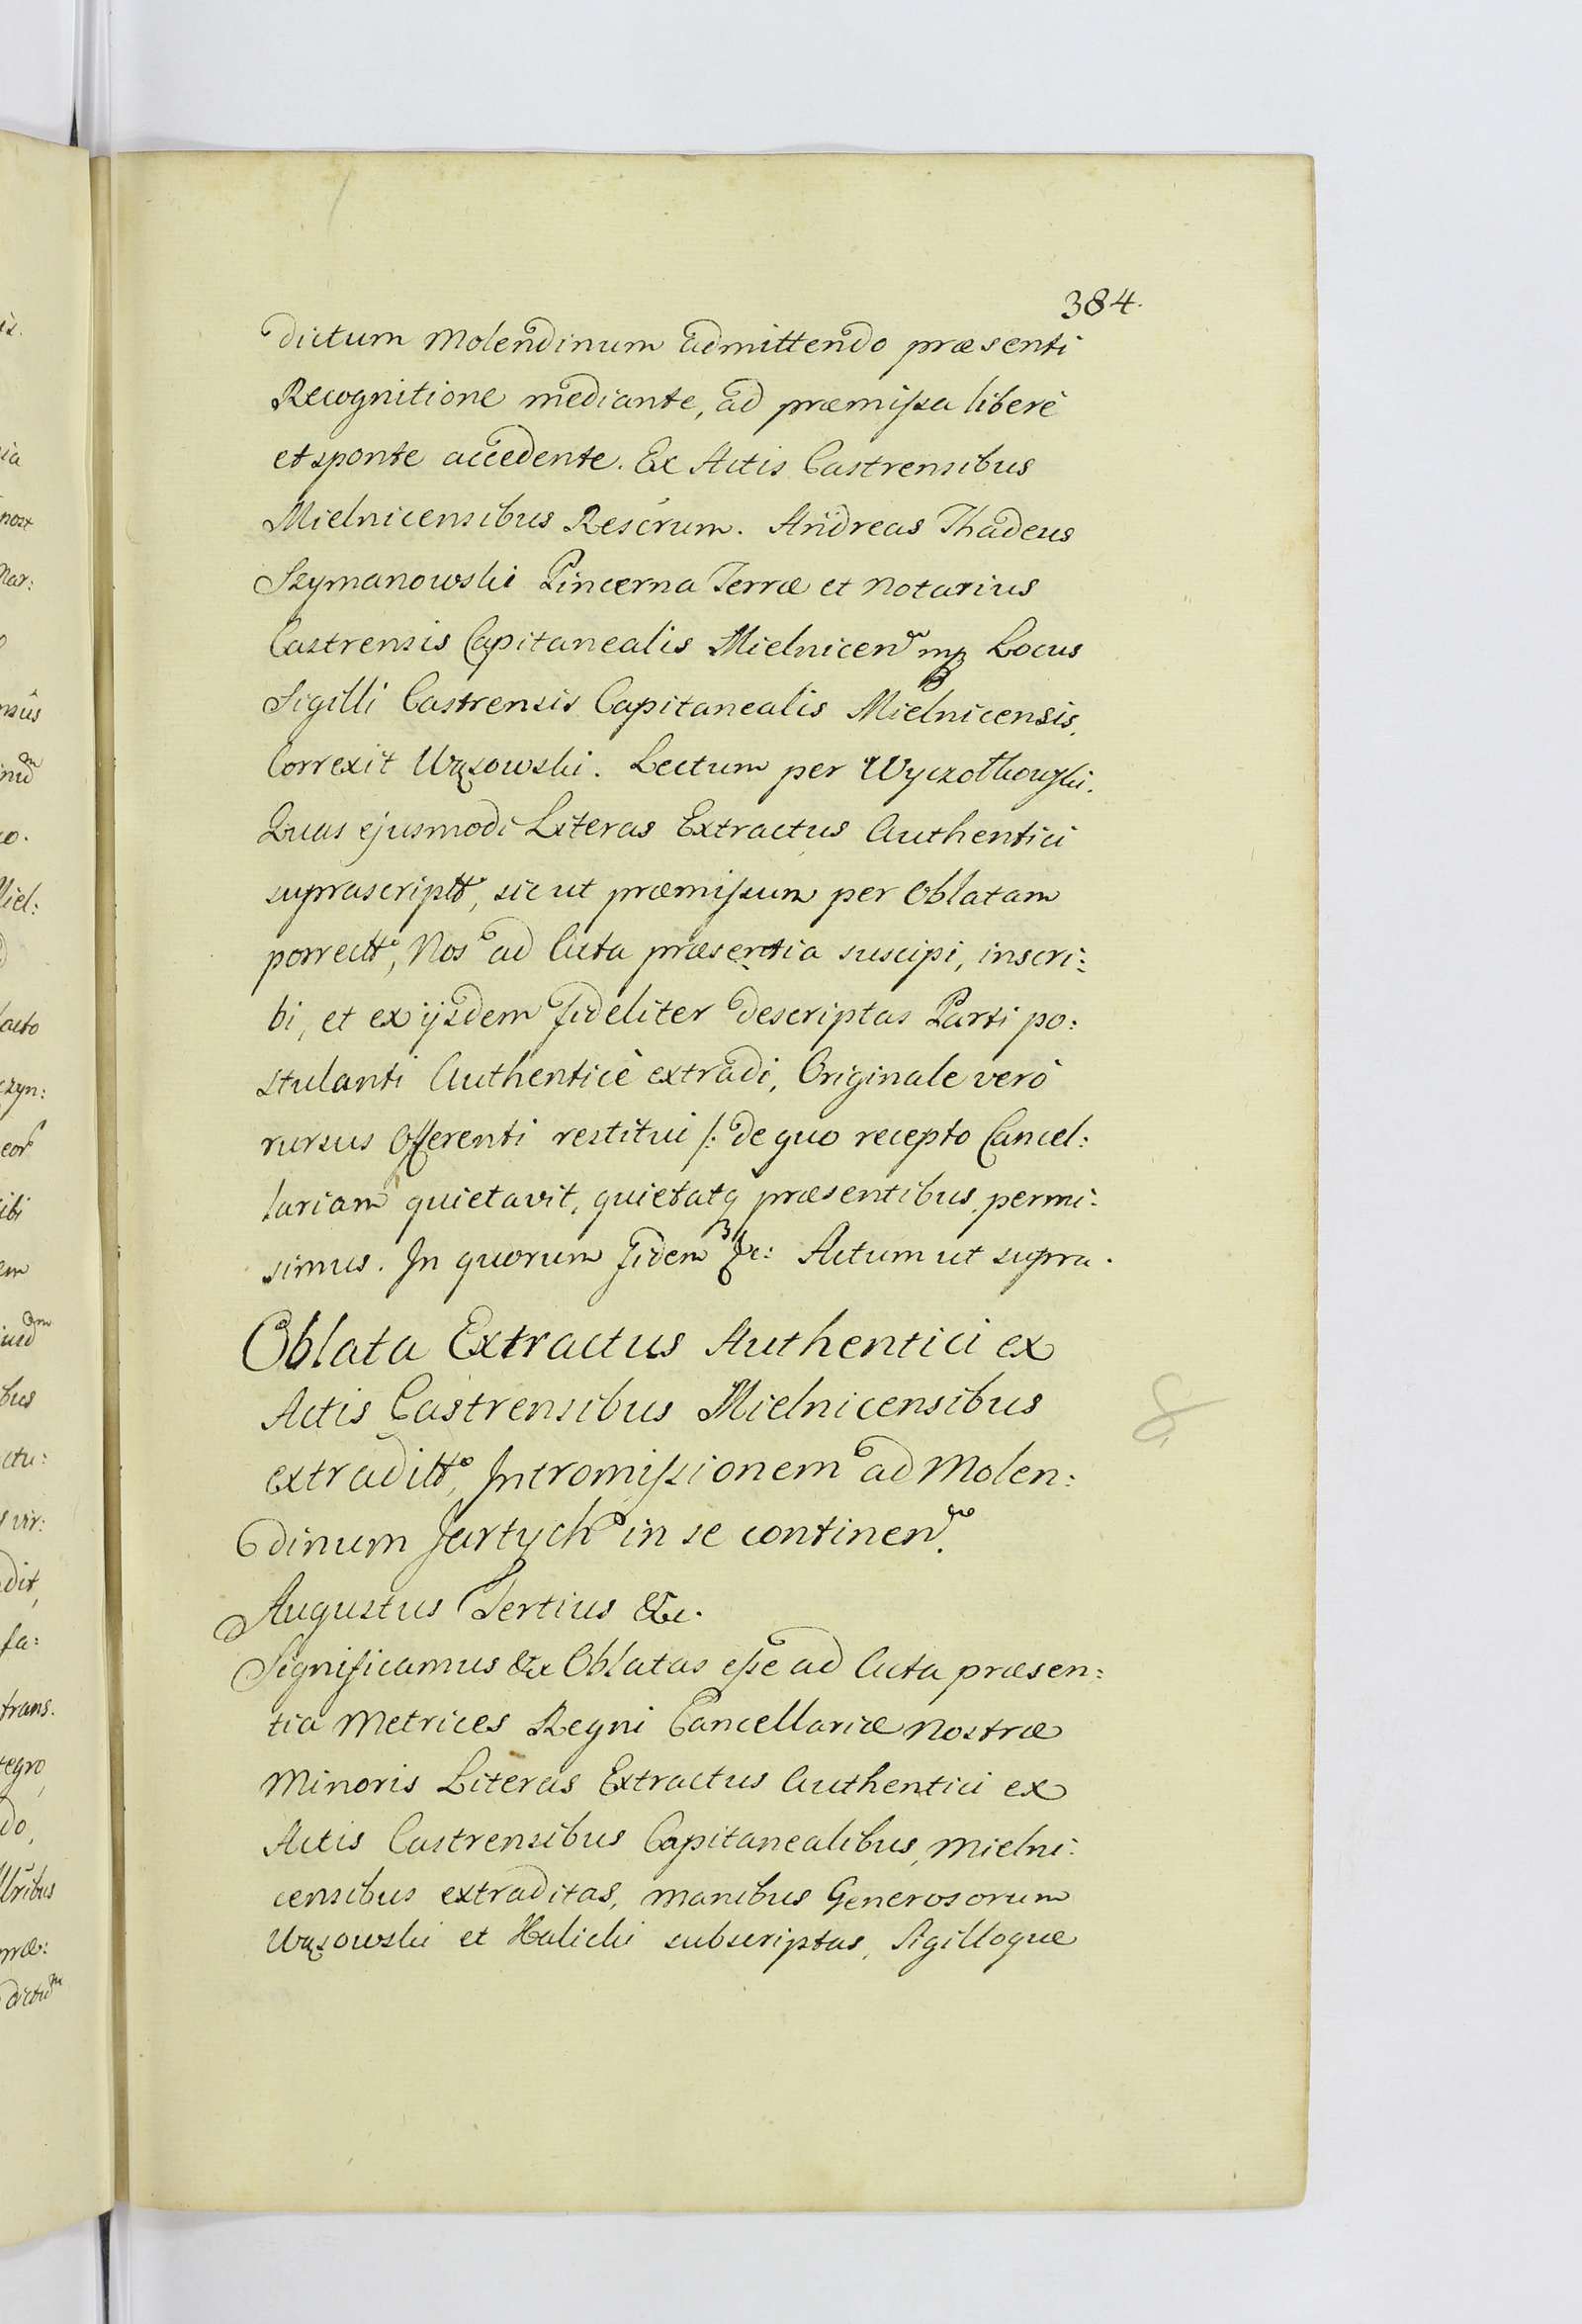 384.
dictum Molendinum admittendo præsenti
Recognitione mediante, ad præmissa liberè
et sponte accedente. Ex Actis Castrensibus
Mielnicensibus Rescrum. Andreas Thadeus
Szymanowski Pincerna Terræ et Notarius
Castrensis Capitanealis Mielnicen mp Locus
Sigilli Castrensis Capitanealis Mielnicensis.
Correxit Wąsowski. Lectum per Wyczołkowski.
Quas ejusmodi Literas Extractus Authentici
suprascriptt, sic ut præmissum per Oblatam
porrectt, Nos ad Acta præsentia suscipi, inscri:
bi, et ex ijsdem fideliter descriptas Parti po:
stulanti Authenticè extradi, Originale verò
rursus Offerenti restitui /: de quo recepto Cancel:
lariam quietavit, quietatq præsentibus permi:
simus. In quorum fidem &c: Actum ut supra.
Oblata Extractus Authentici ex
Actis Castrensibus Mielnicensibus
extraditt, Intromissionem ad Molen:
dinum Jartych in se continen.
Augustus Tertius &c.
Significamus &c Oblatas esse ad Acta præsen:
tia Metrices Regni Cancellariæ Nostræ
Minoris Literas Extractus Authentici ex
Actis Castrensibus Capitanealibus, Mielni:
censibus extraditas, manibus Generosorum
Wąsowski et Halicki subscriptas, Sigilloque